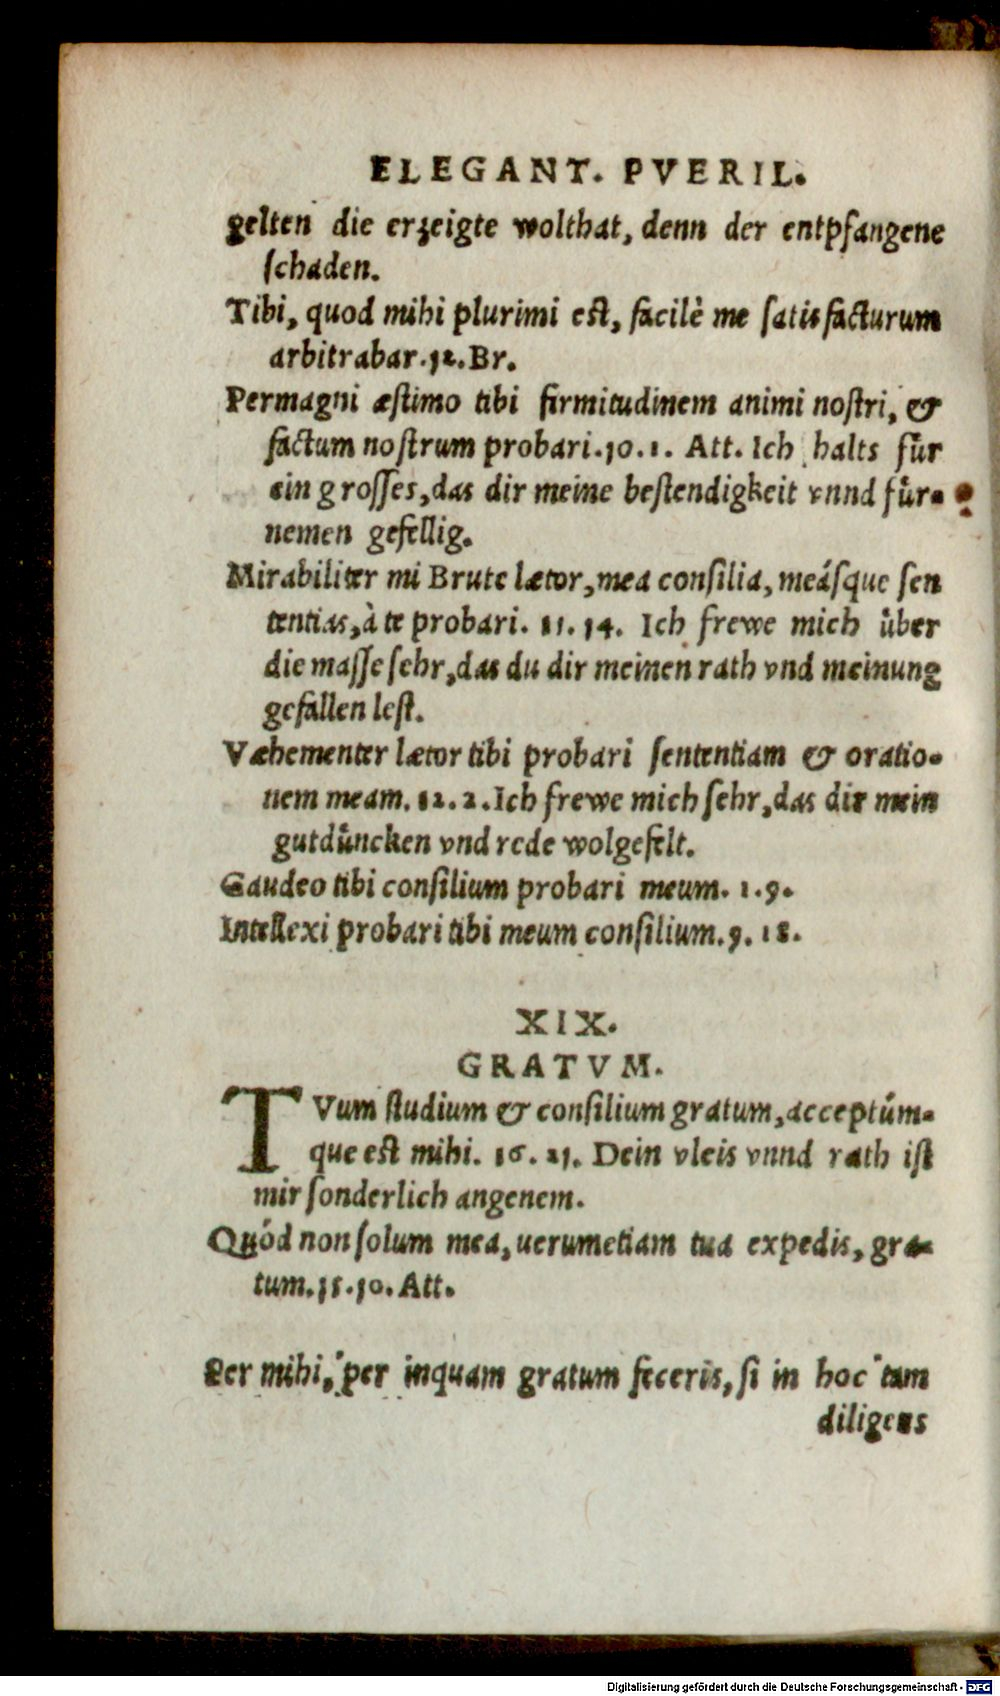 ELEGANT. PVERIL.
gelten die erzeigte wolthat, denn der entpfangene
schaden.
Tibi, quod mihi plurimi est, facilè me satisfacturum
arbitrabar. 12. Br.
Permagni æstimo tibi firmitudinem animi nostri, &
factum nostrum probari. 10. 1. Att. Ich halts fůr
ein grosses, das dir meine bestendigkeit vnnd fůr-
nemen gefellig.
Mirabiliter mi Brute lætor, mea consilia, meásque sen
tentias, à te probari. 11. 14. Ich frewe mich ůber
die masse sehr, das du dir meinen rath vnd meinung
gefallen lest.
Væhementer lætor tibi probari sententiam & oratio-
nem meam. 12. 2. Ich frewe mich sehr, das dir mein
gutdůncken vnd rede wolgefelt.
Gaudeo tibi consilium probari meum. 1. 9.
Intellexi probari tibi meum consilium. 9. 18.
XIX.
GRATVM.
TVum studium & consilium gratum, acceptúm-
que est mihi. 16. 21. Dein vleis vnnd rath ist
mir sonderlich angenem.
Quòd non solum mea, uerumetiam tua expedis, gra-
tum. 15. 10. Att.
Per mihi, per inquam gratum feceris, si in hoc tam
diligens
Digitalisierung gefördert durch die Deutsche Forschungsgemeinschaft - DFG